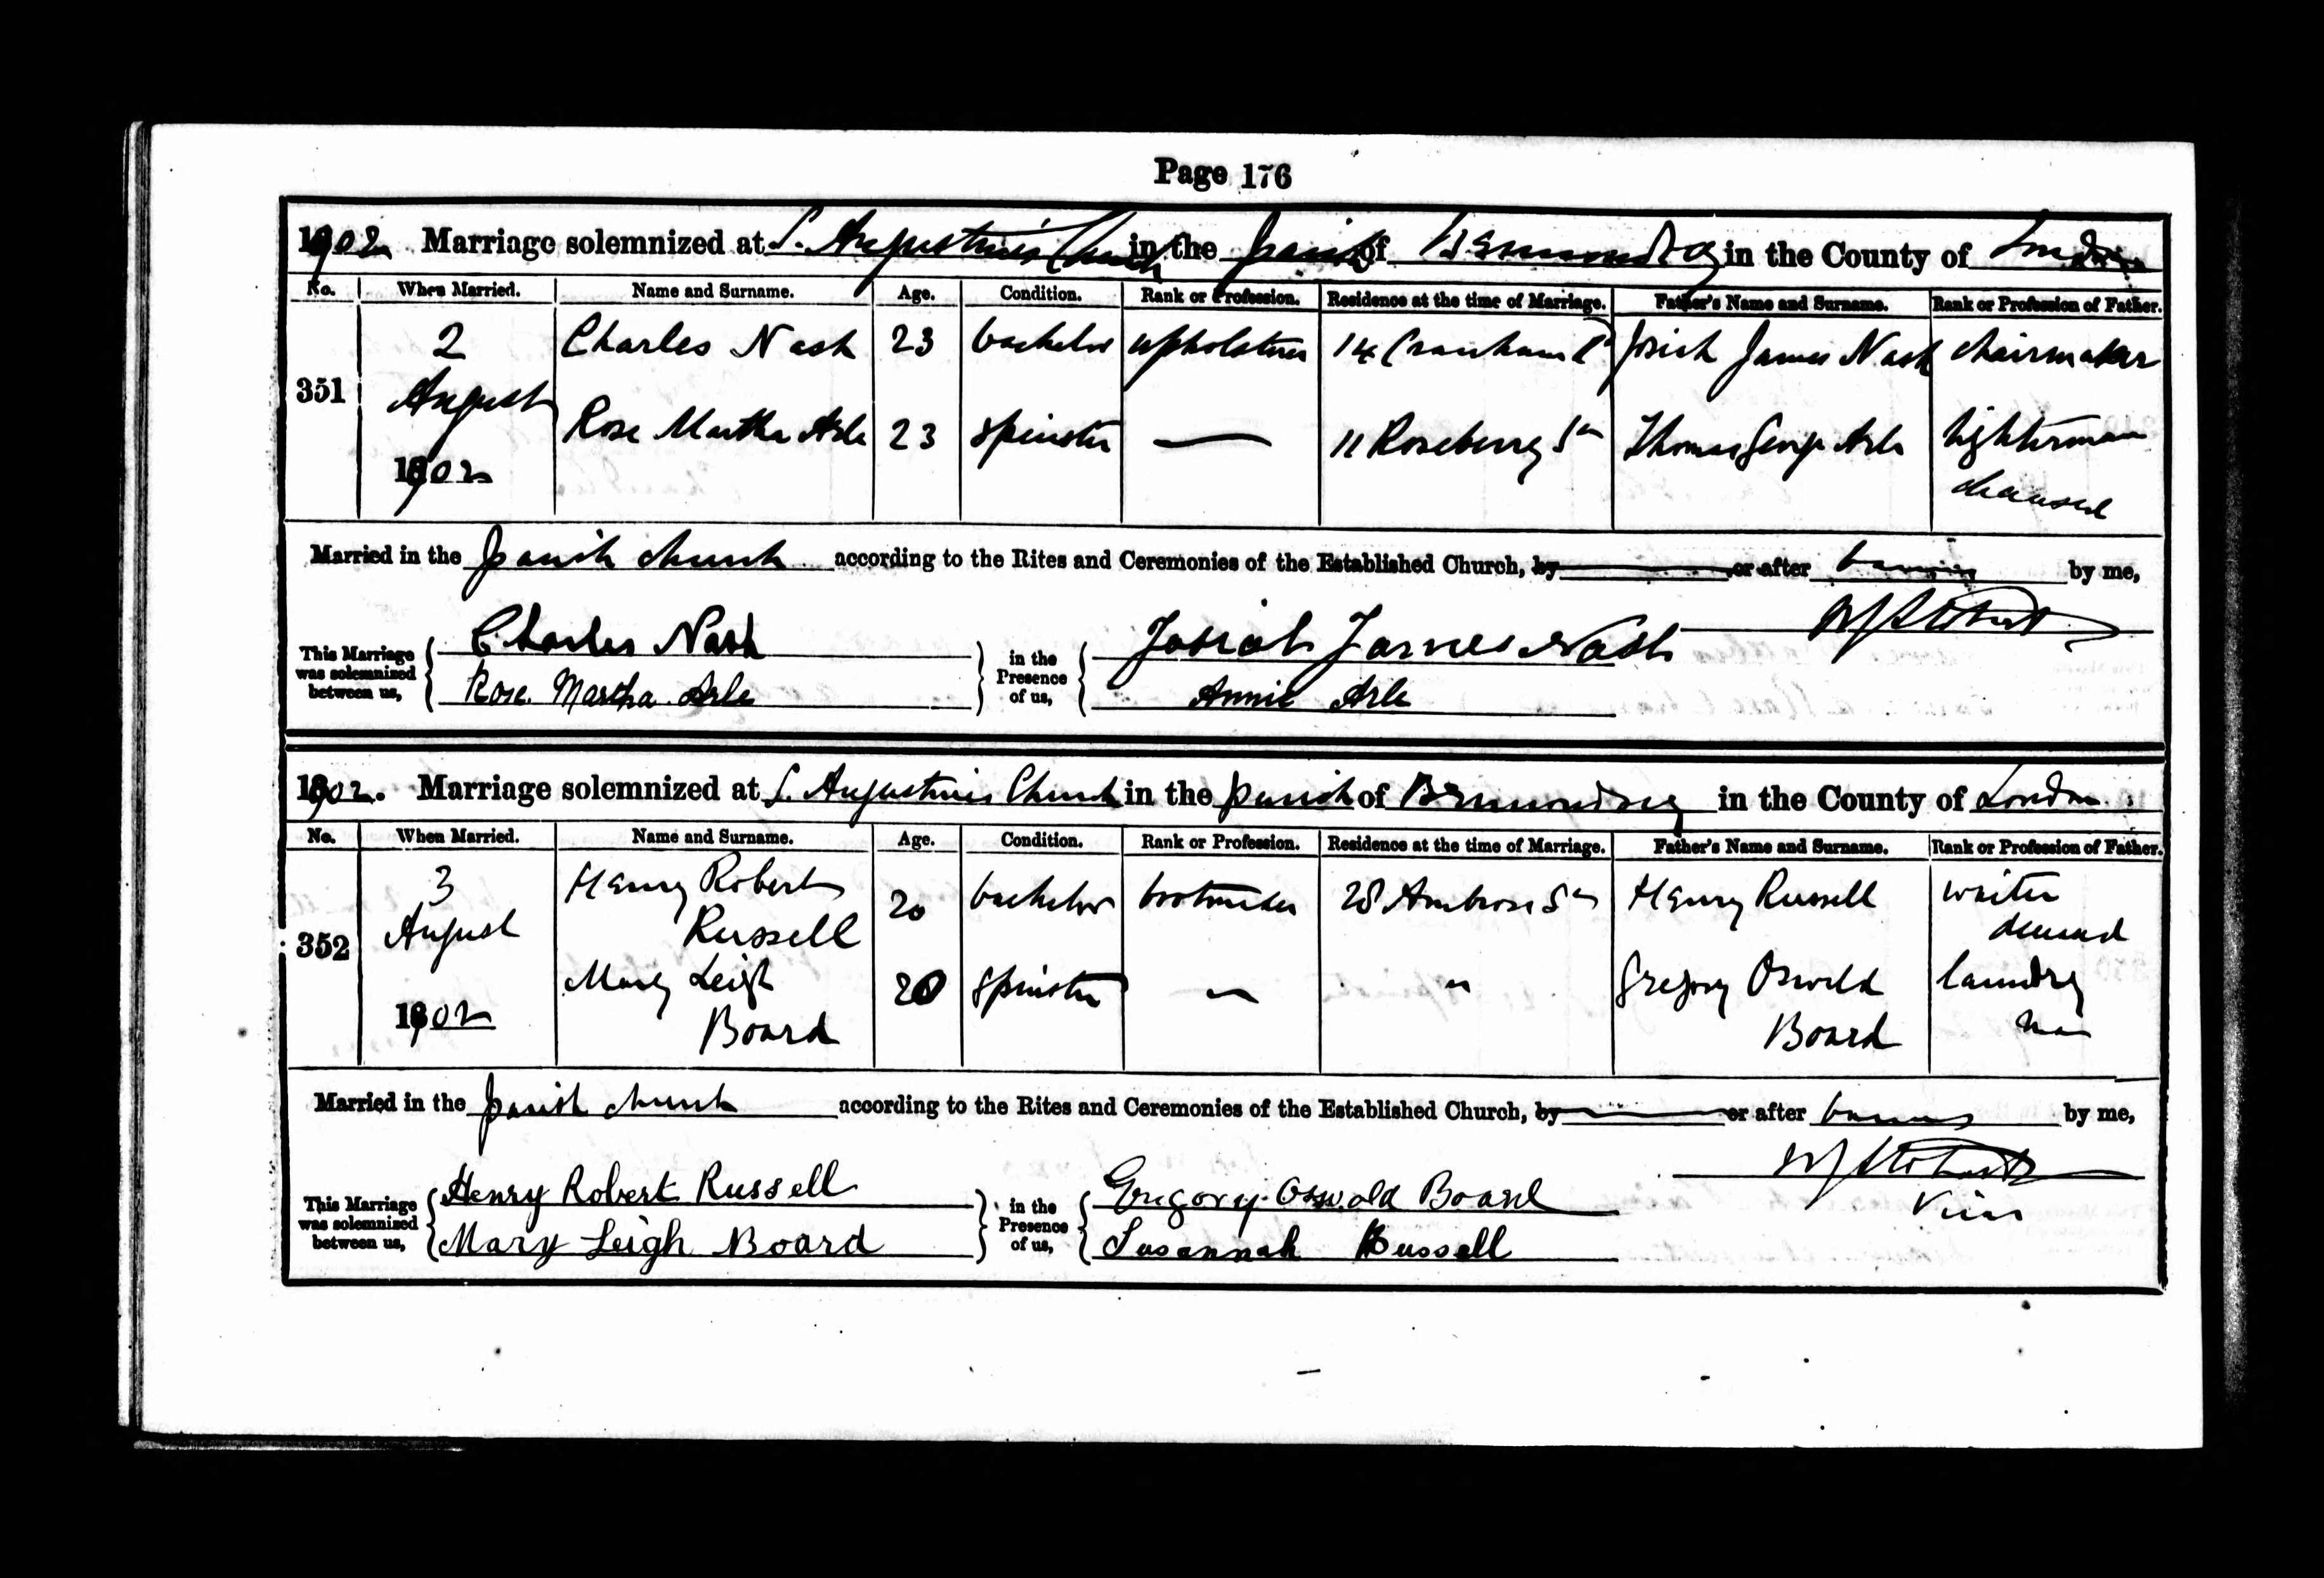 Page 176
1902 Marriage solemnized at S. Augustine's Church in the parish of Bermondsey in the County of London
No. When Married. Name and Surname. Age. Condition. Rank or Profession. Residence at the time of Marriage. Father's Name and Surname. Rank or Profession of Father.
351 2 August 1902 Charles Nash 23 bachelor upholsterer 14 Cranham Josiah James Nash chairmaker
Rose Martha Arle 23 spinster — 11 Roseberry St Thomas George Arle lighterman deceased
Married in the parish church according to the Rites and Ceremonies of the Established Church, by or after banns by me,
This Marriage was solemnized between us, Charles Nash in the Presence of us, Josiah James Nash
Rose Martha Arle Annie Arle
1902. Marriage solemnized at S. Augustine's Church in the parish of Bermondsey in the County of London
No. When Married. Name and Surname. Age. Condition. Rank or Profession. Residence at the time of Marriage. Father's Name and Surname. Rank or Profession of Father.
352 3 August 1902 Henry Robert Russell 20 bachelor bootmaker 28 Ambrose St Henry Russell waiter deceased
Mary Leigh Board 20 spinster — " Gregory Oswald Board laundry man
Married in the parish church according to the Rites and Ceremonies of the Established Church, by or after banns by me,
This Marriage was solemnized between us, Henry Robert Russell in the Presence of us, Gregory Oswald Board
Vicar
Mary Leigh Board Susannah Russell